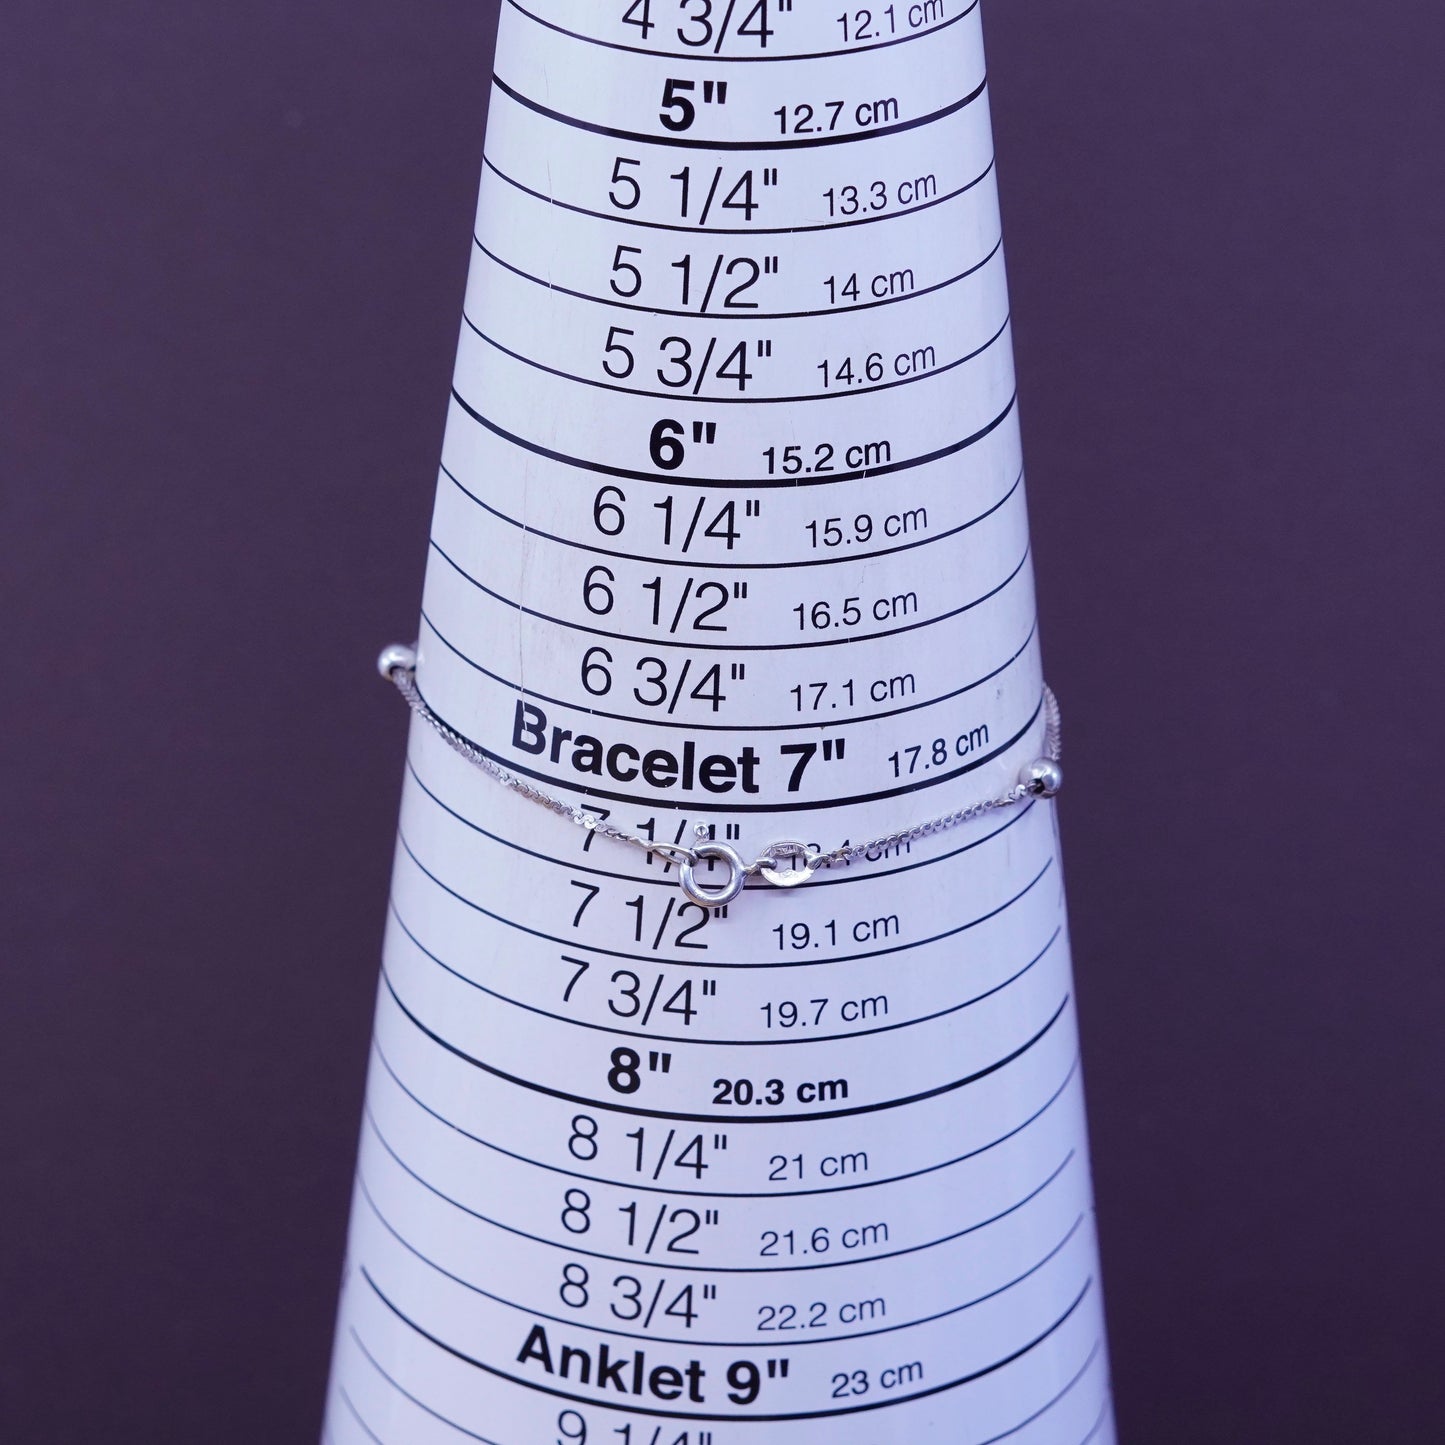 4 3/4" 12.1 cm
5" 12.7 cm
5 1/4" 13.3 cm
5 1/2" 14 cm
5 3/4" 14.6 cm
6" 15.2 cm
6 1/4" 15.9 cm
6 1/2" 16.5 cm
6 3/4" 17.1 cm
Bracelet 7" 17.8 cm
7 1/4" 18.4 cm
7 1/2" 19.1 cm
7 3/4" 19.7 cm
8" 20.3 cm
8 1/4" 21 cm
8 1/2" 21.6 cm
8 3/4" 22.2 cm
Anklet 9" 23 cm
9 1/4"